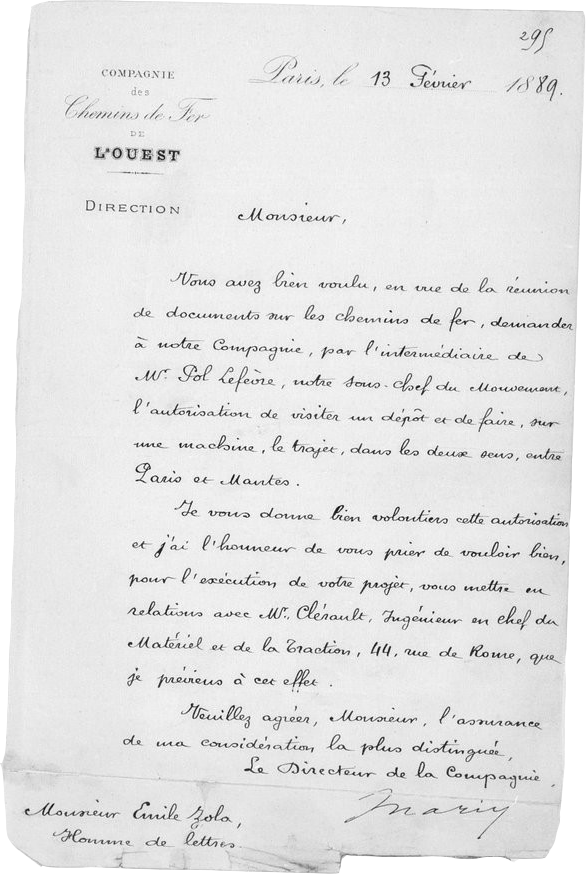 295
COMPAGNIE
des
Chemins de Fer
DE
L'OUEST
Paris, le 13 Février 1889.
DIRECTION
Monsieur,
Vous avez bien voulu, en vue de la réunion
de documents sur les chemins de fer, demander
à notre Compagnie, par l'intermédiaire de
Mr. Pol Lefèvre, notre sous-chef du Mouvement,
l'autorisation de visiter un dépôt et de faire, sur
une machine, le trajet, dans les deux sens, entre
Paris et Mantes.
Je vous donne bien volontiers cette autorisation
et j'ai l'honneur de vous prier de vouloir bien,
pour l'exécution de votre projet, vous mettre en
relations avec Mr. Clérault, Ingénieur en chef du
Matériel et de la Traction, 44, rue de Rome, que
je préviens à cet effet.
Veuillez agréer, Monsieur, l'assurance
de ma considération la plus distinguée,
Le Directeur de la Compagnie,
Marin
Monsieur Emile Zola,
Homme de lettres.